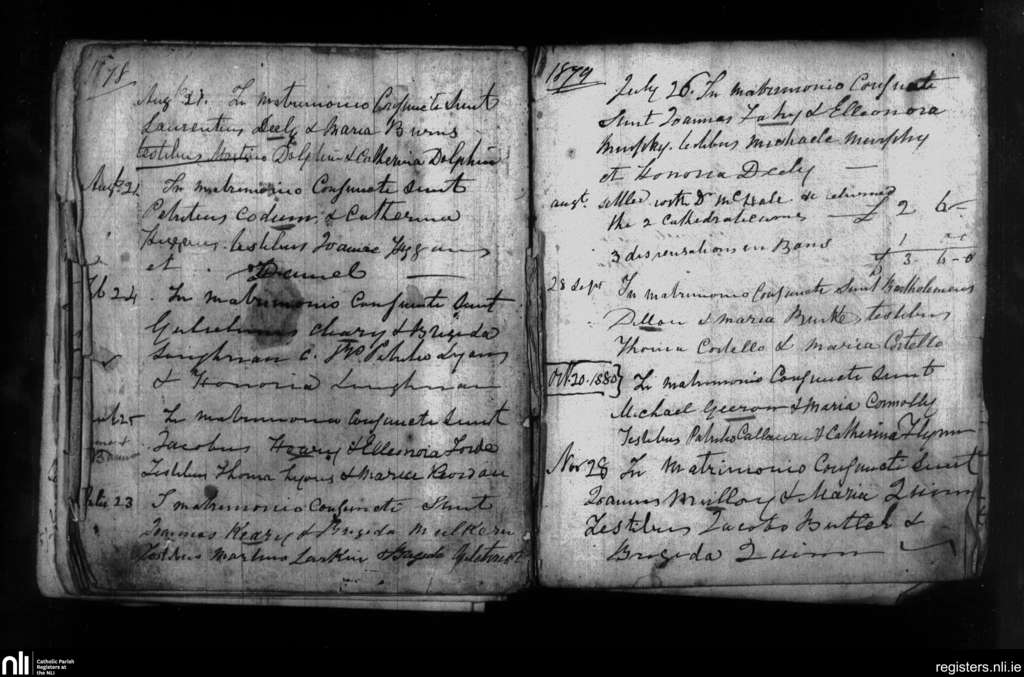 1878
Augt 21. In matrimonio Conjuncte Sunt
Laurentius Deely & Maria Burns
testibus Martino Dolphin & Catherina Dolphin
Augt 21 In matrimonio Conjuncte Sunt
Patritius & Catherina
testibus Joannae
et Daniel
Feb 24. In matrimonio Conjuncte Sunt
Cleary & Brigida
Patritio Lyons
& Honoria
25 In matrimonio Conjuncte Sunt
Jacobus Heary & Elleonora Forde
Testibus Thoma Lyons & Maria
23 I matrimonio Conjuncte Sunt
Joannas Keary & Brigida Mulkern
Testibus Martinus Larkin & Brigida
1879
July 26. In matrimonio Conjuncte
Sunt Joannas Fahy & Elleonora
Murphy. testibus Michaele Murphy
et Honoria Deely —
augt. settled with Dr McHale & returned
the 2 Cathedraticums — £ 2 6 -
3 dispensations in Bans 1
£ 3 - 6 - 0
28 Sept In matrimonio Conjuncte Sunt Bartholomeus
Dillon & Maria Burke testibus
Thoma Costello & Maria Costello
Oct. 20. 1880 In matrimonio Conjuncte Sunt
Michael & Maria Connolly
Testibus Patritio & Catherina Flynn
Nov 28 In Matrimonio Conjuncte Sunt
Joannas Mulloy & Maria Quinn
Testibus Jacobo Butler &
Brigida Quinn
nli Catholic Parish
Registers at
the NLI
registers.nli.ie